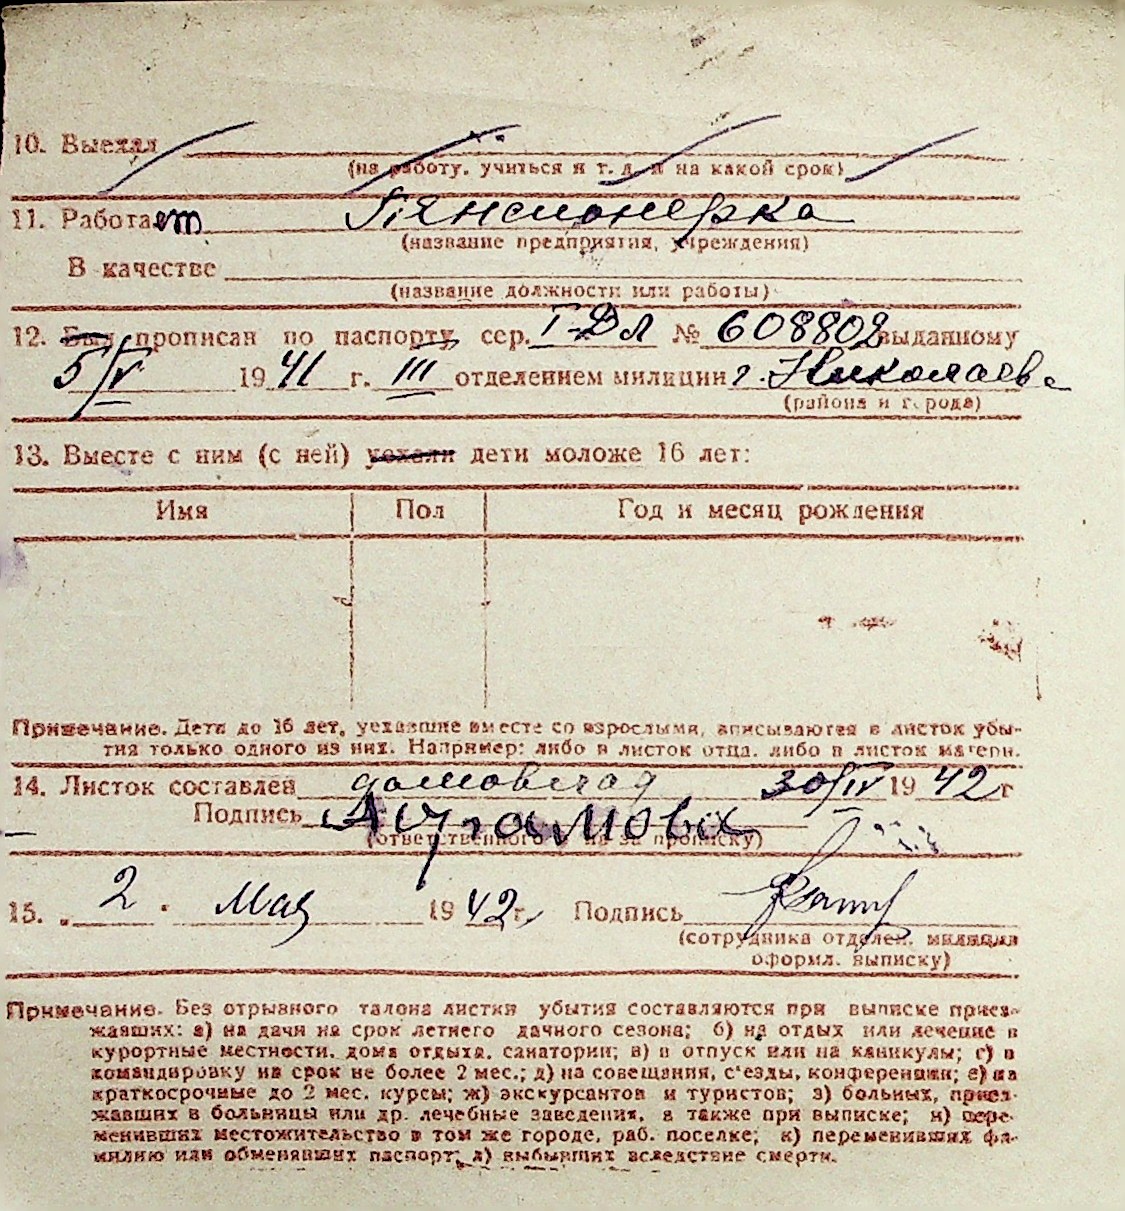 10. Выехал
(на работу, учиться и т. д. и на какой срок)
11. Работает Пянсионерка
(название предприятия, учреждения)
В качестве
(название должности или работы)
12. Был прописан по паспорту сер. I-ДЛ № 608802 выданному
5/V 1941 г. III отделением милиции г. Николаева
(района и города)
13. Вместе с ним (с ней) уехали дети моложе 16 лет:
Имя Пол Год и месяц рождения
Примечание. Дети до 16 лет, уехавшие вместе со взрослыми, вписываются в листок убы-
тия только одного из них. Например: либо в листок отца, либо в листок матери.
14. Листок составлен 30/IV 1942 г
Подпись
(ответственного за прописку)
15. „2" Мая 1942 г. Подпись
(сотрудника отделен. милиции
оформл. выписку)
Примечание. Без отрывного талона листки убытия составляются при выписке приез-
жавших: а) на дачи на срок летнего дачного сезона; б) на отдых или лечение в
курортные местности, дома отдыха, санатории; в) в отпуск или на каникулы; г) в
командировку на срок не более 2 мес.; д) на совещания, с'езды, конференции; е) на
краткосрочные до 2 мес. курсы; ж) экскурсантов и туристов; з) больных, приез-
жавших в больницы или др. лечебные заведения, а также при выписке; и) пере-
менивших местожительство в том же городе, раб. поселке; к) переменивших фа-
милию или обменявших паспорт; л) выбывших вследствие смерти.